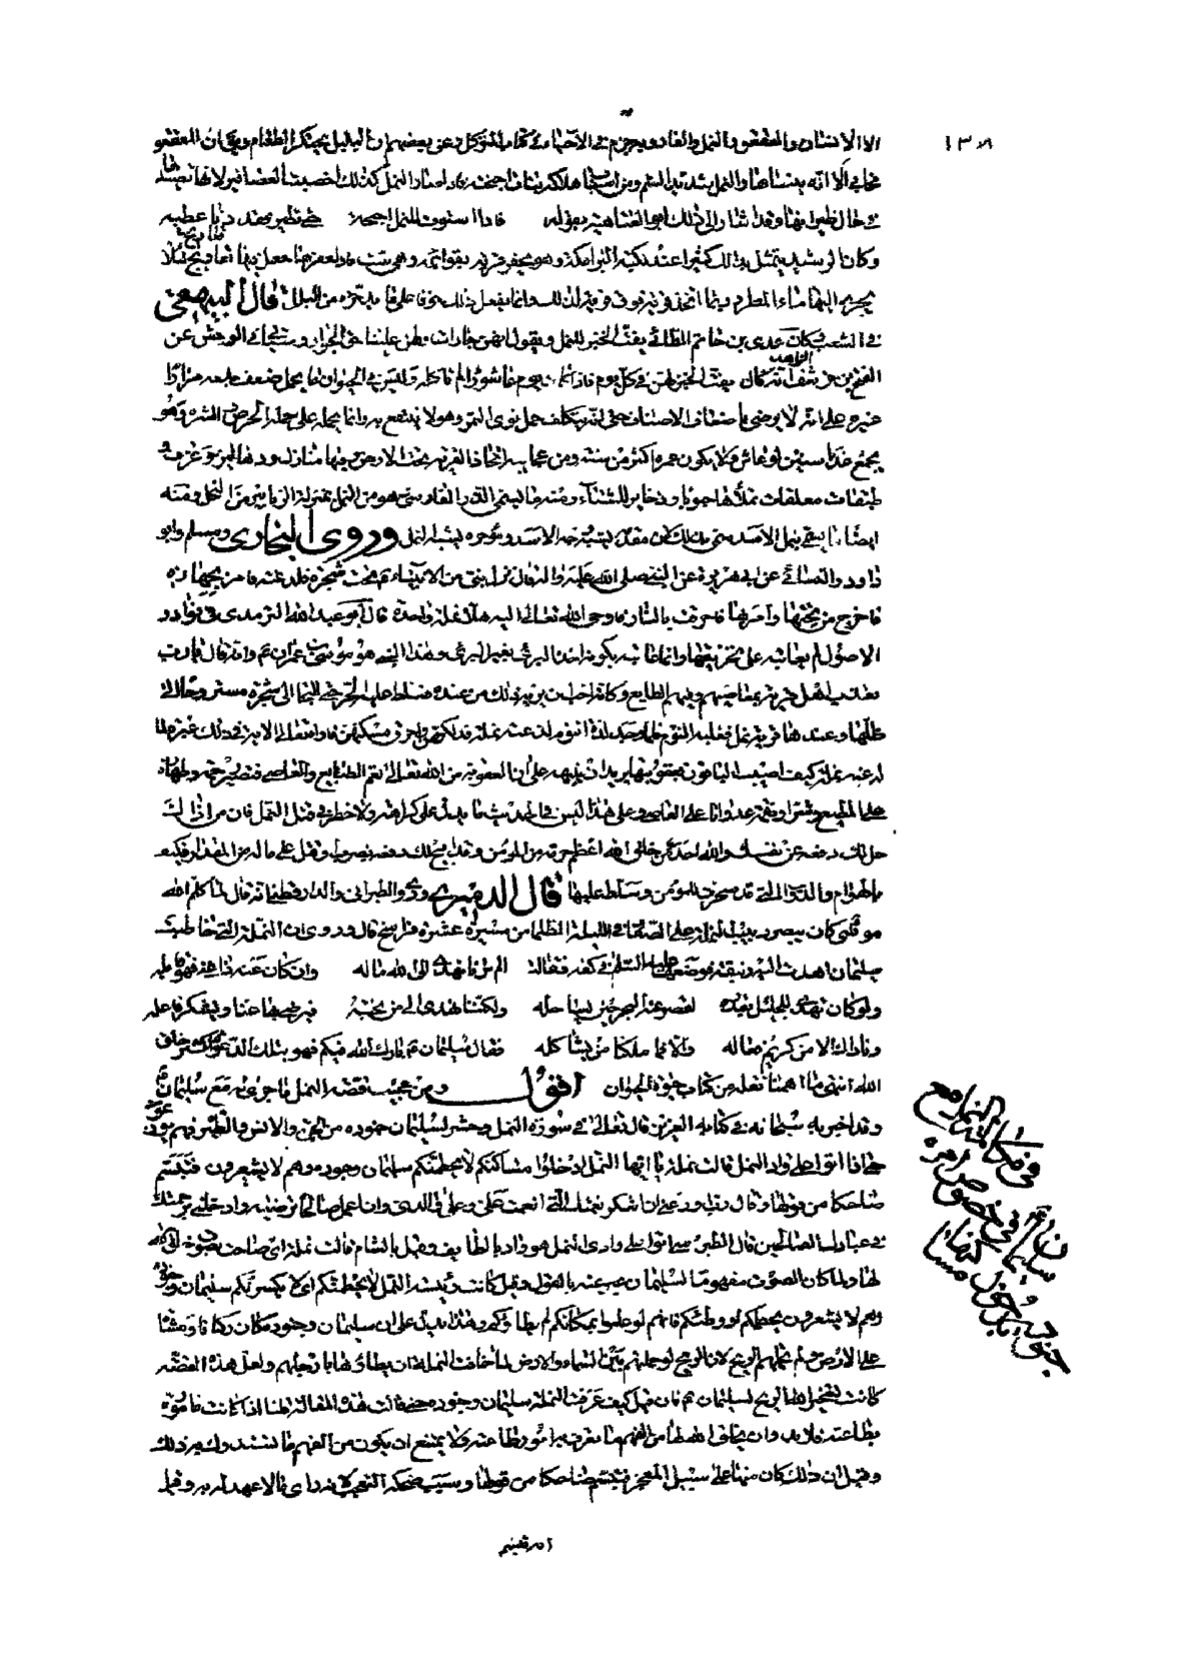 ١٣٨
الا الانسان والعقعق والنمل والفار وبه جزم في الاحياء في كتاب التوكل وعن بعضهم ان البلبل يحتكر الطعام ويقال ان للعقعق
مخابي الا انه ينساها والنمل شديد الشم ومن اسباب هلاكه نبات اجنحته فاذا صار النمل كذلك اخصبت العصافير لانها تصيدها
في حال طيرانها وقد اشار الى ذلك ابو العتاهية بقوله فاذا استوت للنمل اجنحة حتى تطير فقد دنا عطبه
وكان الرشيد يتمثل بذلك كثيرا عند نكبة البرامكة وهو يحفر قريته بقوائمه وهي ست فاذا حفرها جعل فيها تعاريج لئلا
يجري اليها ماء المطر وربما اتخذ قرية فوق قرية لذلك وانما يفعل ذلك خوفا على ما يدخره من البلل قال البيهقي
في الشعب وكان عدي بن حاتم الطائي يفت الخبز للنمل ويقول انهن جارات ولهن علينا حق الجوار وسياتي في الوحش عن
الفتح بن شخرف الزاهد انه كان يفت الخبز لهن في كل يوم فاذا كان يوم عاشورا لم تاكله وليس في الحيوان ما يحمل ضعف بدنه مرارا
غيره على انه لا يرضى باضعاف الاضعاف حتى انه يتكلف حمل نوى التمر وهو لا ينتفع به وانما يحمله على حمله الحرص والشره وهو
يجمع غذاء سنين لو عاش ولا يكون عمره اكثر من سنة ومن عجايبه اتخاذ القرية تحت الارض وفيها منازل ودهاليز وغرف و
طبقات معلقات تملأها حبوبا وذخاير للشتاء ومنه ما يسمى الذر الفارسي وهو من النمل بمنزلة الزنابير من النحل ومنه
ايضا ما يسمى بنمل الاسد سمي بذلك لان مقدمه يشبه وجه الاسد ومؤخره يشبه النمل وروى البخاري ومسلم وابو
داود والنسائي عن ابي هريرة عن النبي صلى الله عليه واله قال نزل نبي من الانبياء تحت شجرة فلدغته نملة فامر بجهازه
فاخرج من تحتها وامر بها فاحرقت بالنار فاوحى الله تعالى اليه هلا نملة واحدة قال ابو عبد الله الترمذي في نوادر
الاصول لم يعاتبه على تحريقها وانما عاتبه بكونه اخذ البرئ بغير البرئ وهذا النبي هو موسى بن عمران ع وانه قال يا رب
تعذب اهل قرية بمعاصيهم وفيهم الطايع وكانه احب ان يريه ذلك من عنده فسلط عليه الحر حتى التجا الى شجرة مستروحا الى
ظلها وعندها قرية نمل فغلبه النوم فلما وجد لذة النوم لدغته نملة فدلكهن واحرق مسكنهن فاراه تعالى الاية في ذلك عبرة لما
لدغته نملة كيف اصيب الباقون بعقوبتها يريد ان ينبهه على ان العقوبة من الله تعالى تعم الطايع والعاصي فتصير رحمة وطهارة
على المطيع وشرا ونقمة وعدوانا على العاصي وعلى هذا ليس في الحديث ما يدل على كراهة ولا حظر في قتل النمل فان من اذاك
حل لك دفعه عن نفسك والله احد من خلق الله اعظم حرمة من المؤمن وقد ابيح لك دفعه بضرب او قتل على ماله من المقدار فكيف
بالهوام والدواب التي قد سخرت للمؤمن وسلط عليها قال الدميري وروى الطبراني والدارقطني انه قال لما كلم الله
موسى كان يبصر دبيب النملة على الصفا في الليلة الظلماء من مسيرة عشرة فراسخ قال وروي ان النملة التي خاطبت
سليمان اهدت اليه نبقة فوضعها عليه السلام في كفه فقالت الم ترنا نهدي الى الله ماله وان كان عنه ذا غنى فهو قابله
ولو كان يهدى للجليل بقدره لقصر عنه البحر حين يساحله ولكننا نهدي الى من نحبه فيرضى بها عنا ويشكر فاعله
وما ذاك الا من كريم فعاله والا فما في ملكنا من يشاكله فقال سليمان ع بارك الله فيكم فهو بتلك الدعوة اكثر خلق
الله انتهى ما اهمنا نقله من كتاب حيوة الحيوان اقول ومن عجيب قصة النمل ما جرى له مع سليمان ع
وقد اخبر به سبحانه في كتابه العزيز قال تعالى في سورة النمل وحشر لسليمان جنوده من الجن والانس والطير فهم يوزعون
حتى اذا اتوا على واد النمل قالت نملة يا ايها النمل ادخلوا مساكنكم لا يحطمنكم سليمان وجنوده وهم لا يشعرون فتبسم
ضاحكا من قولها وقال رب اوزعني ان اشكر نعمتك التي انعمت علي وعلى والدي وان اعمل صالحا ترضيه وادخلني برحمتك
في عبادك الصالحين قال الطبرسي اتوا على وادي النمل هو واد بالطايف وقيل بالشام قالت نملة اي صاحت بصوت خلق الله
لها ولما كان الصوت مفهوما لسليمان عبر عنه بالقول وقيل كانت رئيسة النمل لا يحطمنكم اي لا يكسرنكم سليمان وجنوده
وهم لا يشعرون بحطمكم او وطئكم فانهم لو علموا بمكانكم لم يطاؤكم وهذا يدل على ان سليمان وجنوده كان ركبانا ومشاة
على الارض ولم تحملهم الريح لان الريح لو حملتهم بين السماء والارض لما خافت النملة ان يطاؤها بارجلهم ولعل هذه القصة
كانت قبل تسخير الله الريح لسليمان ع فان قيل كيف عرفت النملة سليمان وجنوده حتى قالت هذه المقالة قلنا اذا كانت مامورة
بطاعته فلا بد وان يخلق الله لها من الفهم ما تعرف به امور طاعته ولا يمتنع ان يكون من الفهم ما تستدرك به ذلك
وقيل ان ذلك كان منها على سبيل المعجز فتبسم ضاحكا من قولها وسبب ضحكه التعجب لانه راى ما لا عهد له به وقيل
في حكاية النملة مع
سليمان ع في خصوص امره
جنوده بدخول مساكنها